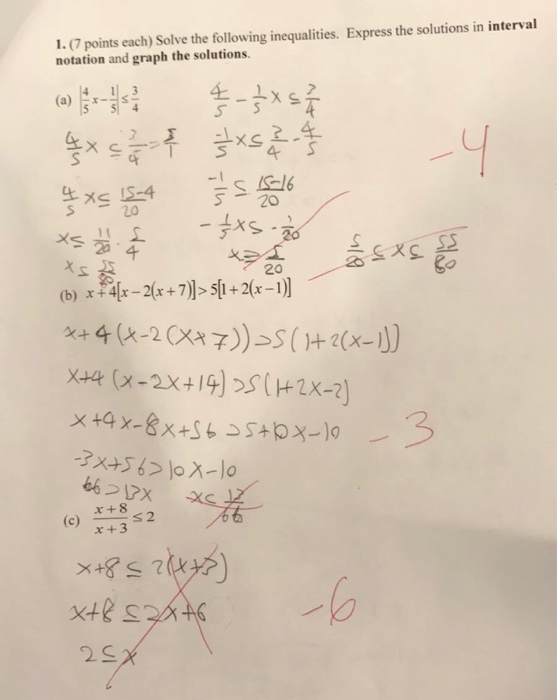 1. (7 points each) Solve the following inequalities. Express the solutions in interval
notation and graph the solutions.
(a) |4/5 x - 1/5| ≤ 3/4
4/5 - 1/5 x ≤ 3/4
4/5 x ≤ 3/4 =
-1/5 x ≤ 3/4 - 4/5
-4
4/5 x ≤ 15-4/20
-1/5 ≤ 15-16/20
x ≤ 11/20 · 5/4
-1/5 x ≤ -1/20
x ≤ 55/80
x ≥ 5/20
5/20 ≤ x ≤ 55/80
(b) x+4[x-2(x+7)] > 5[1+2(x-1)]
x+4(x-2(x+7)) > 5(1+2(x-1))
x+4(x-2x+14) > 5(1+2x-2)
x+4x-8x+56 > 5+10x-10
-3
-3x+56 > 10x-10
66 > 13x
x < 13/66
(c) x+8/x+3 ≤ 2
x+8 ≤ 2(x+3)
x+8 ≤ 2x+6
-6
2 ≤ x